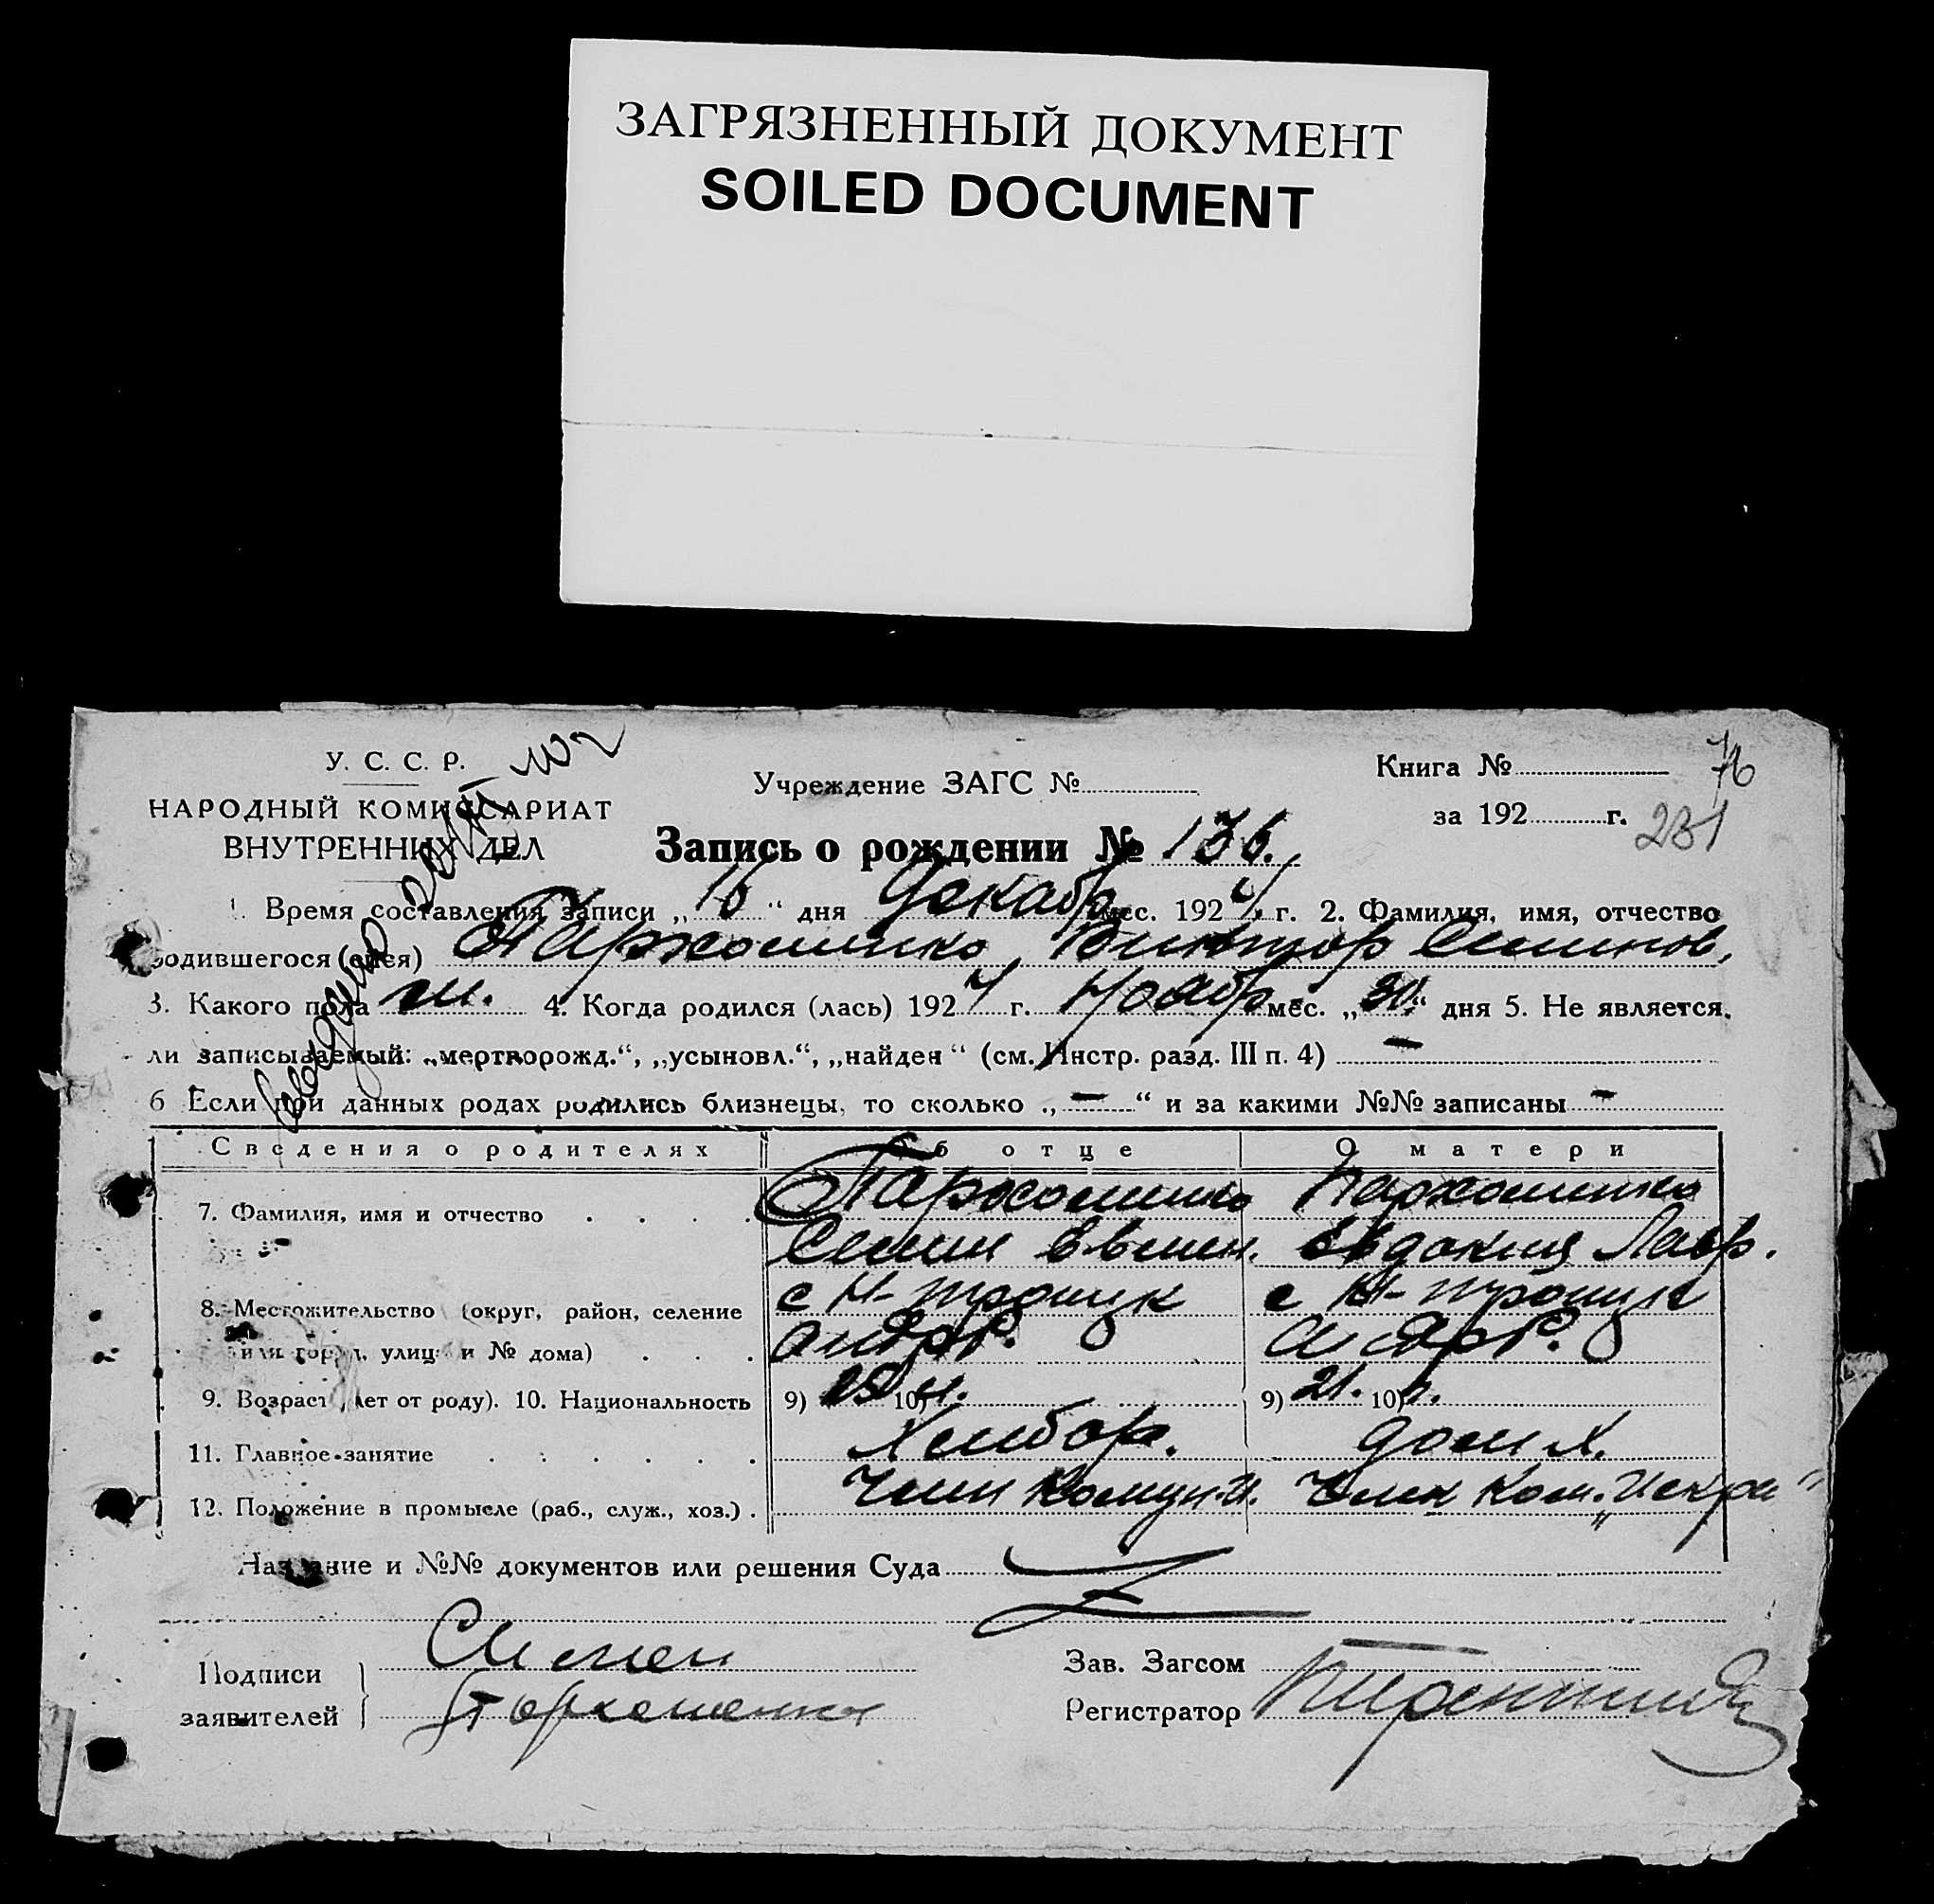 ЗАГРЯЗНЕННЫЙ ДОКУМЕНТ
SOILED DOCUMENT
У. С. С. Р.
НАРОДНЫЙ КОМИССАРИАТ
ВНУТРЕННИХ ДЕЛ
Учреждение ЗАГС №
Книга № 76
за 192 г. 231
Запись о рождении № 136.
1. Время составления записи „16“ дня Декабр мес. 1924 г. 2. Фамилия, имя, отчество
родившегося (шейся) Пархоменко Виктор Семенов.
3. Какого пола м. 4. Когда родился (лась) 1924 г. Ноябр мес. „30“ дня 5. Не является
ли записываемый: „мертворожд.“, „усыновл.“, „найден“ (см. Инстр. разд. III п. 4) —
6 Если при данных родах родились близнецы, то сколько „—“ и за какими №№ записаны —
Сведения о родителях Об отце О матери
7. Фамилия, имя и отчество . . . . Пархоменко Пархоменко
Семен Евмен. Евдокия Лавр.
8. Местожительство (округ, район, селение с Н-Троицк с Н-Троицк
или город, улица и № дома) . . .
9. Возраст (лет от роду). 10. Национальность 9) 25 10) 9) 21. 10)
11. Главное занятие . . . . . . Хлибор. дом х.
12. Положение в промысле (раб., служ., хоз.) . Член Комун. И. Член Ком. „Искра“
Название и №№ документов или решения Суда
Подписи Семен
заявителей Пархоменко
Зав. Загсом
Регистратор